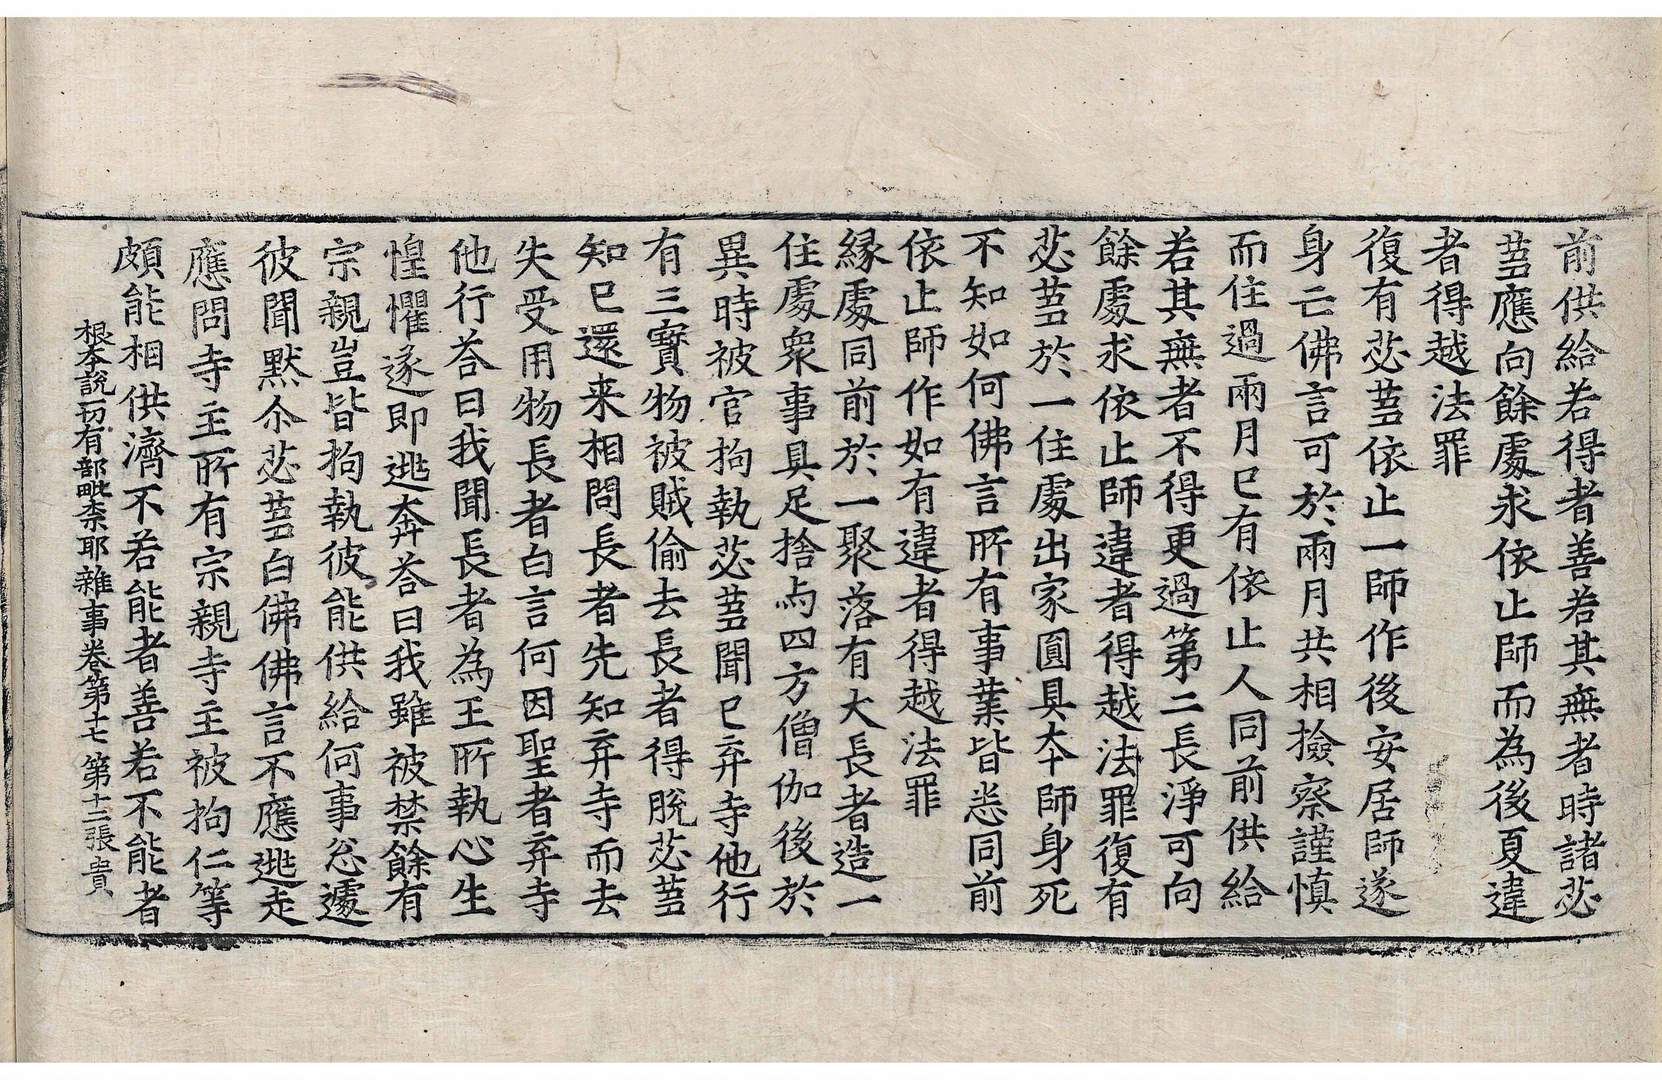 前供給若得者善若其無者時諸苾
蒭應向餘處求依止師而為後夏違
者得越法罪
復有苾蒭依止一師作後安居師遂
身亡佛言可於兩月共相撿察謹慎
而住過兩月已有依止人同前供給
若其無者不得更過第二長淨可向
餘處求依止師違者得越法罪復有
苾蒭於一住處出家圓具本師身死
不知如何佛言所有事業皆悉同前
依止師作如有違者得越法罪
緣處同前於一聚落有大長者造一
住處衆事具足捨与四方僧伽後於
異時被官拘執苾蒭聞已弃寺他行
有三寶物被賊偷去長者得脫苾蒭
知已還来相問長者先知弃寺而去
失受用物長者白言何因聖者弃寺
他行荅曰我聞長者為王所執心生
惶懼遂即逃奔荅曰我雖被禁餘有
宗親豈皆拘執彼能供給何事忩遽
彼聞默尒苾蒭白佛佛言不應逃走
應問寺主所有宗親寺主被拘仁等
頗能相供濟不若能者善若不能者
根本說一切有部毗柰耶雜事卷第十七 第十二張 貴